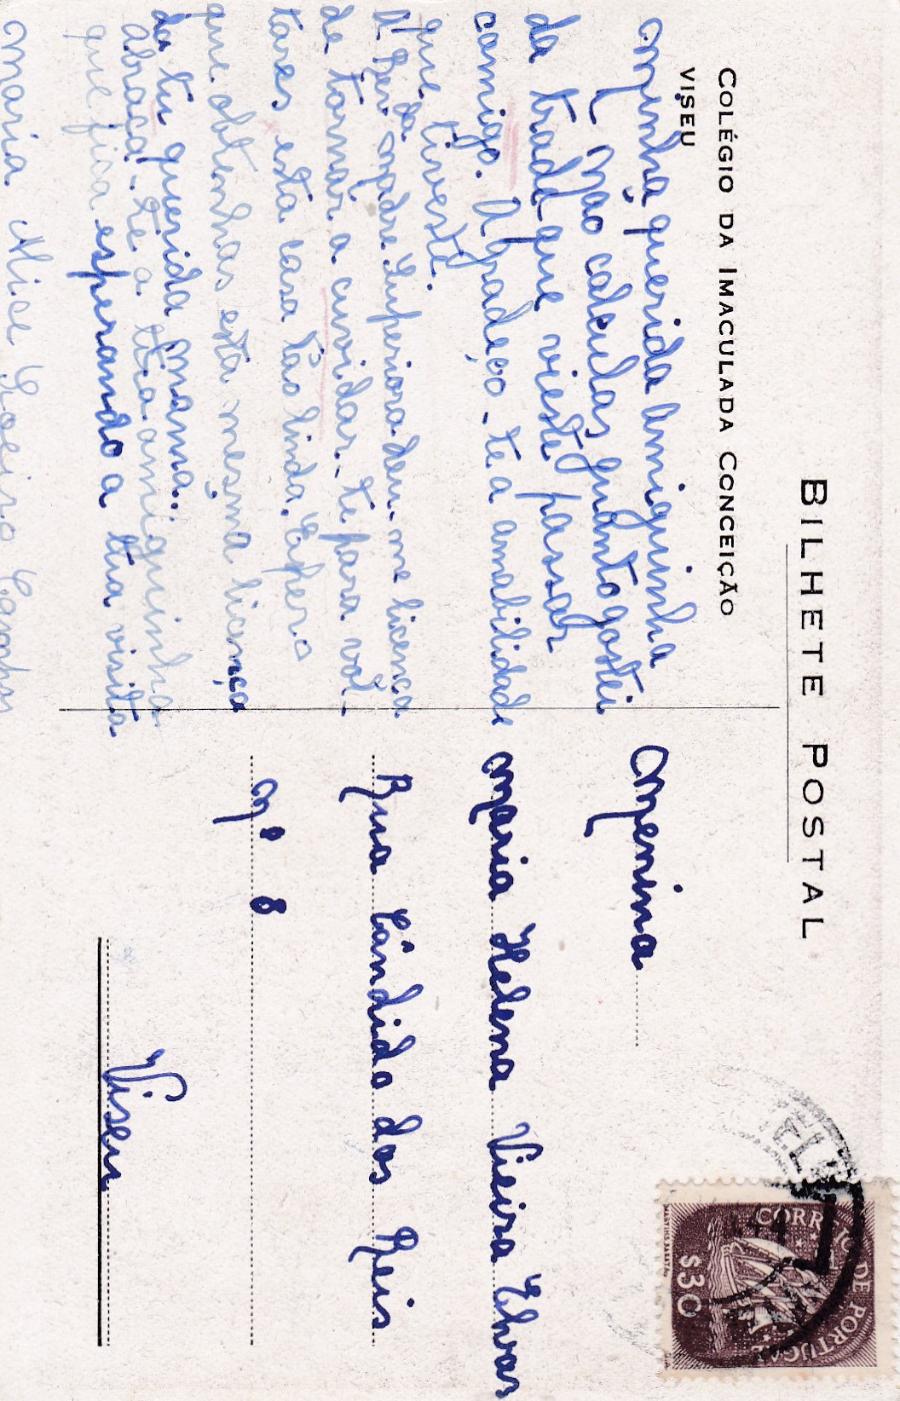 BILHETE POSTAL
COLÉGIO DA IMACULADA CONCEIÇÃO
VISEU
Minha querida Amiguinha
Não calculas quanto gostei
da tarde que vieste passar
comigo. Agradeço-te a amabilidade
que tiveste.
A Rev.da Madre Superiora deu-me licença
de tornar a cunvidar-te para vol-
tares esta casa tão linda. Espero
que obtenhas esta mesma licença
da tu querida Mamã.
Abraça-te a tua amiguinha
que fica esperando a tua visita
Maria Alice Loeiro
Menina
Maria Helena Vieira Elvas
Rua Cândido dos Reis
Nº 8
Viseu
CORREIO DE PORTUGAL
$30